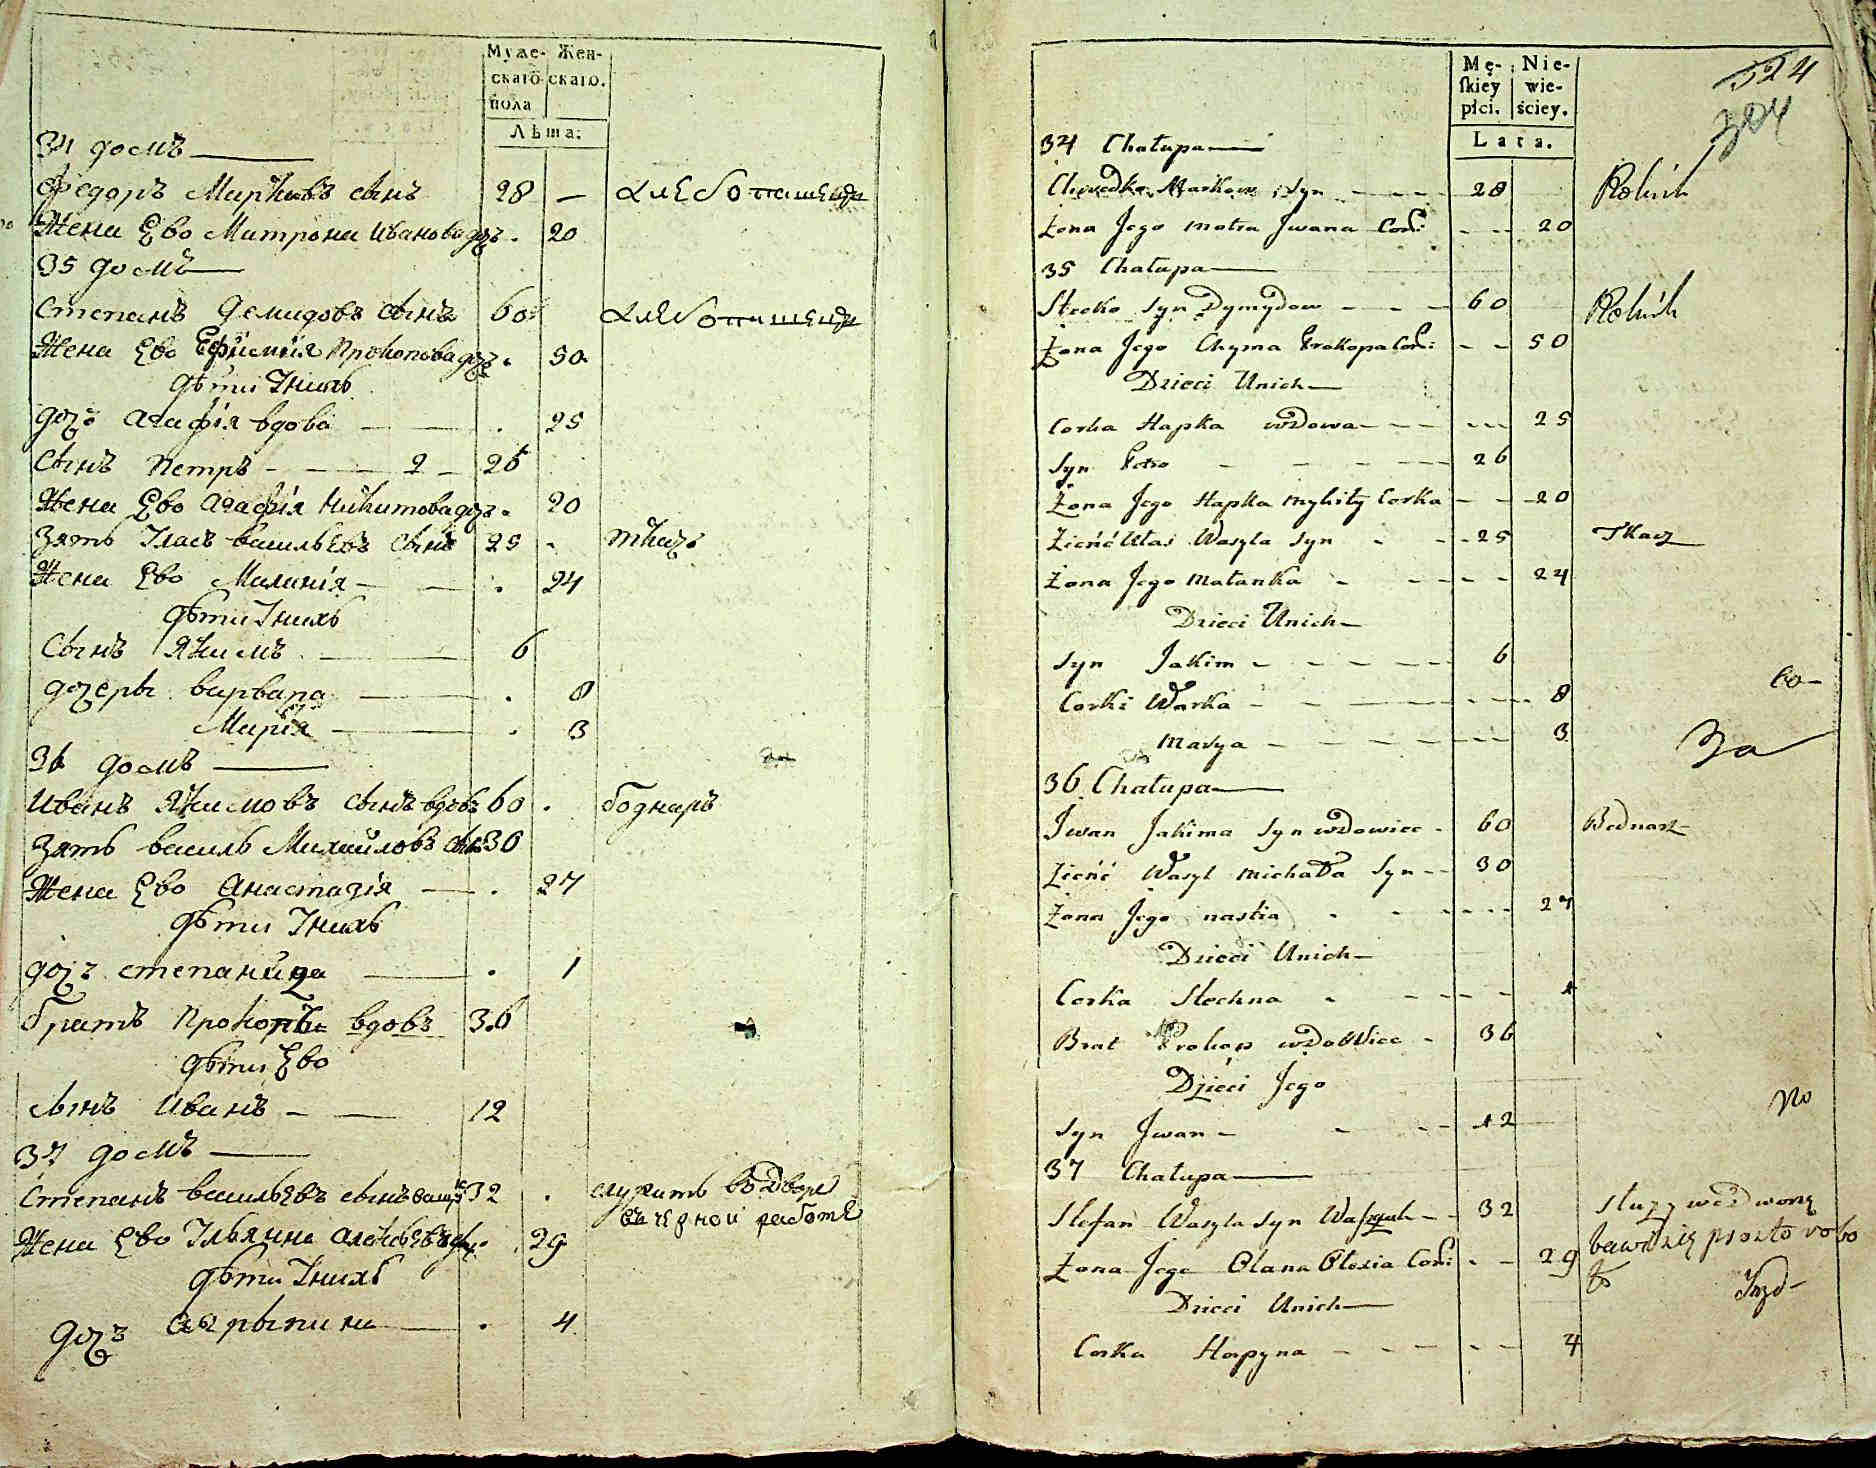 Муже- Жен-
скаго скаго.
пола
Лѣта:
34 домъ
Федоръ Марковъ сынъ 28 — хлебопашецъ
Жена Ево Матрона Иванова дочъ . 20
35 домъ
Степанъ Демидовъ сынъ 60 хлебопашецъ
Жена Ево Ефимия Прокопова дочъ . 50
дѣти Унихъ
дочъ Агафія вдова . 25
Сынъ Петръ 2 26
Жена Ево Агафія Никитова дочъ . 20
Зять Уласъ васильевъ Сынъ 25 . ткачъ
Жена Ево Маланія . 24
дѣти Унихъ
Сынъ Якимъ 6
дочеры варвара . 8
Марія . 3
36 домъ
Иванъ Якимовъ сынъ вдовъ 60 . боднаръ
Зять василь Михайловъ сынъ 30
Жена Ево Анастазія . 27
дѣти Унихъ
дочъ степанида . 1
братъ Прокопъ вдовъ 36
дѣти Ево
сынъ Иванъ 12
37 домъ
Степанъ васильевъ сынъ 32 . служить во Дворе
въ черной работе
Жена Ево Ульяна Алексѣева дочъ . 29
дѣти Унихъ
дочъ агрыпина . 4
Mę- Nie-
ſkiey wie-
płci. ściey.
Lata.
524
304
34 Chałupa
Chwedko Markow syn 28 Rolnik
Żona Jego Motra Jwana Corki 20
35 Chałupa
Stecko syn Dymydow 60 Rolnik
Żona Jego Chyma Prokopa Corki 50
Dzieci Unich
Corka Hapka wdowa 25
Syn Petro 26
Żona Jego Hapka Mykity Corka 20
Zięć Ułas Wasyla Syn 25 Tkacz
Żona Jego Małanka 24
Dzieci Unich
Syn Jakim 6
Corki Warka 8
Marya 3
За
36 Chałupa
Jwan Jakima Syn wdowiec 60 Bednarz
Zięć Wasyl Michała Syn 30
Żona Jego nastia 27
Dzieci Unich
Corka Stechna 1
Brat Prokop wdowiec 36
Dzieci Jego
Syn Jwan 12
No
37 Chałupa
Stefan Wasyla Syn 32 służy wé dworzę
Żona Jego Olana Olexia Corki 29
Dzieci Unich
Corka Horpyna 4